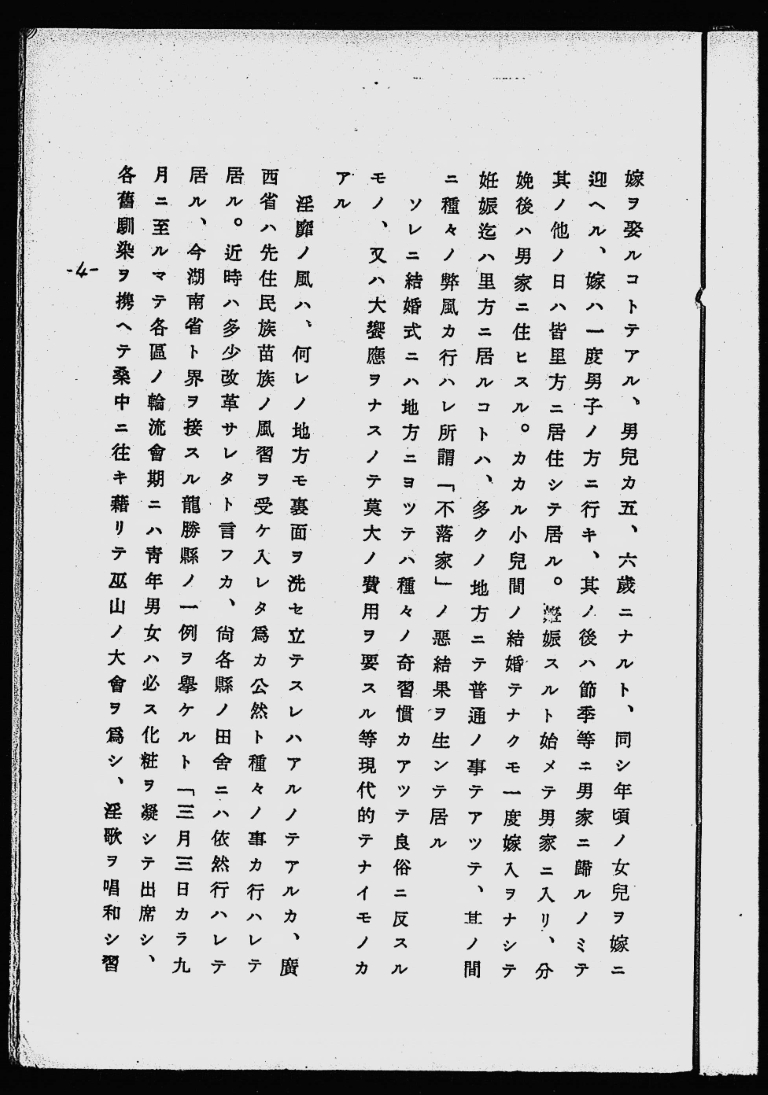 嫁ヲ娶ルコトテアル、男兒カ五、六歲ニナルト、同シ年頃ノ女兒ヲ嫁ニ
迎ヘル、嫁ハ一度男子ノ方ニ行キ、其ノ後ハ節季等ニ男家ニ歸ルノミテ
其ノ他ノ日ハ皆里方ニ居住シテ居ル。振スルト始メテ男家ニ入リ、分
娩後ハ男家ニ住ヒスル。カカル小兒間ノ結婚テナクモ一度嫁入ヲナシテ
妊娠迄ハ里方ニ居ルコトハ、多クノ地方ニテ普通ノ事テアツテ、其ノ間
ニ種々ノ弊風カ行ハレ所謂「不落家」ノ惡結果ヲ生ンテ居ル
ソレニ結婚式ニハ地方ニヨツテハ種々ノ奇習慣カアツテ良俗ニ反スル
モノ、又ハ大饗應ヲナスノテ莫大ノ費用ヲ要スル等現代的テナイモノカ
アル
淫靡ノ風ハ、何レノ地方モ裏面ヲ洗セ立テスレハアルノテアルカ、廣
西省ハ先住民族苗族ノ風習ヲ受ケ入レタ爲カ公然ト種々ノ事カ行ハレテ
居ル。近時ハ多少改革サレタト言フカ、尙各縣ノ田舍ニハ依然行ハレテ
居ル、今湖南省ト界ヲ接スル龍勝縣ノ一例ヲ擧ケルト「三月三日カラ九
月ニ至ルマテ各區ノ輪流會期ニハ靑年男女ハ必ス化粧ヲ凝シテ出席シ、
各舊馴染ヲ携ヘテ桑中ニ往キ藉リテ巫山ノ大會ヲ爲シ、淫歌ヲ唱和シ習
-4-